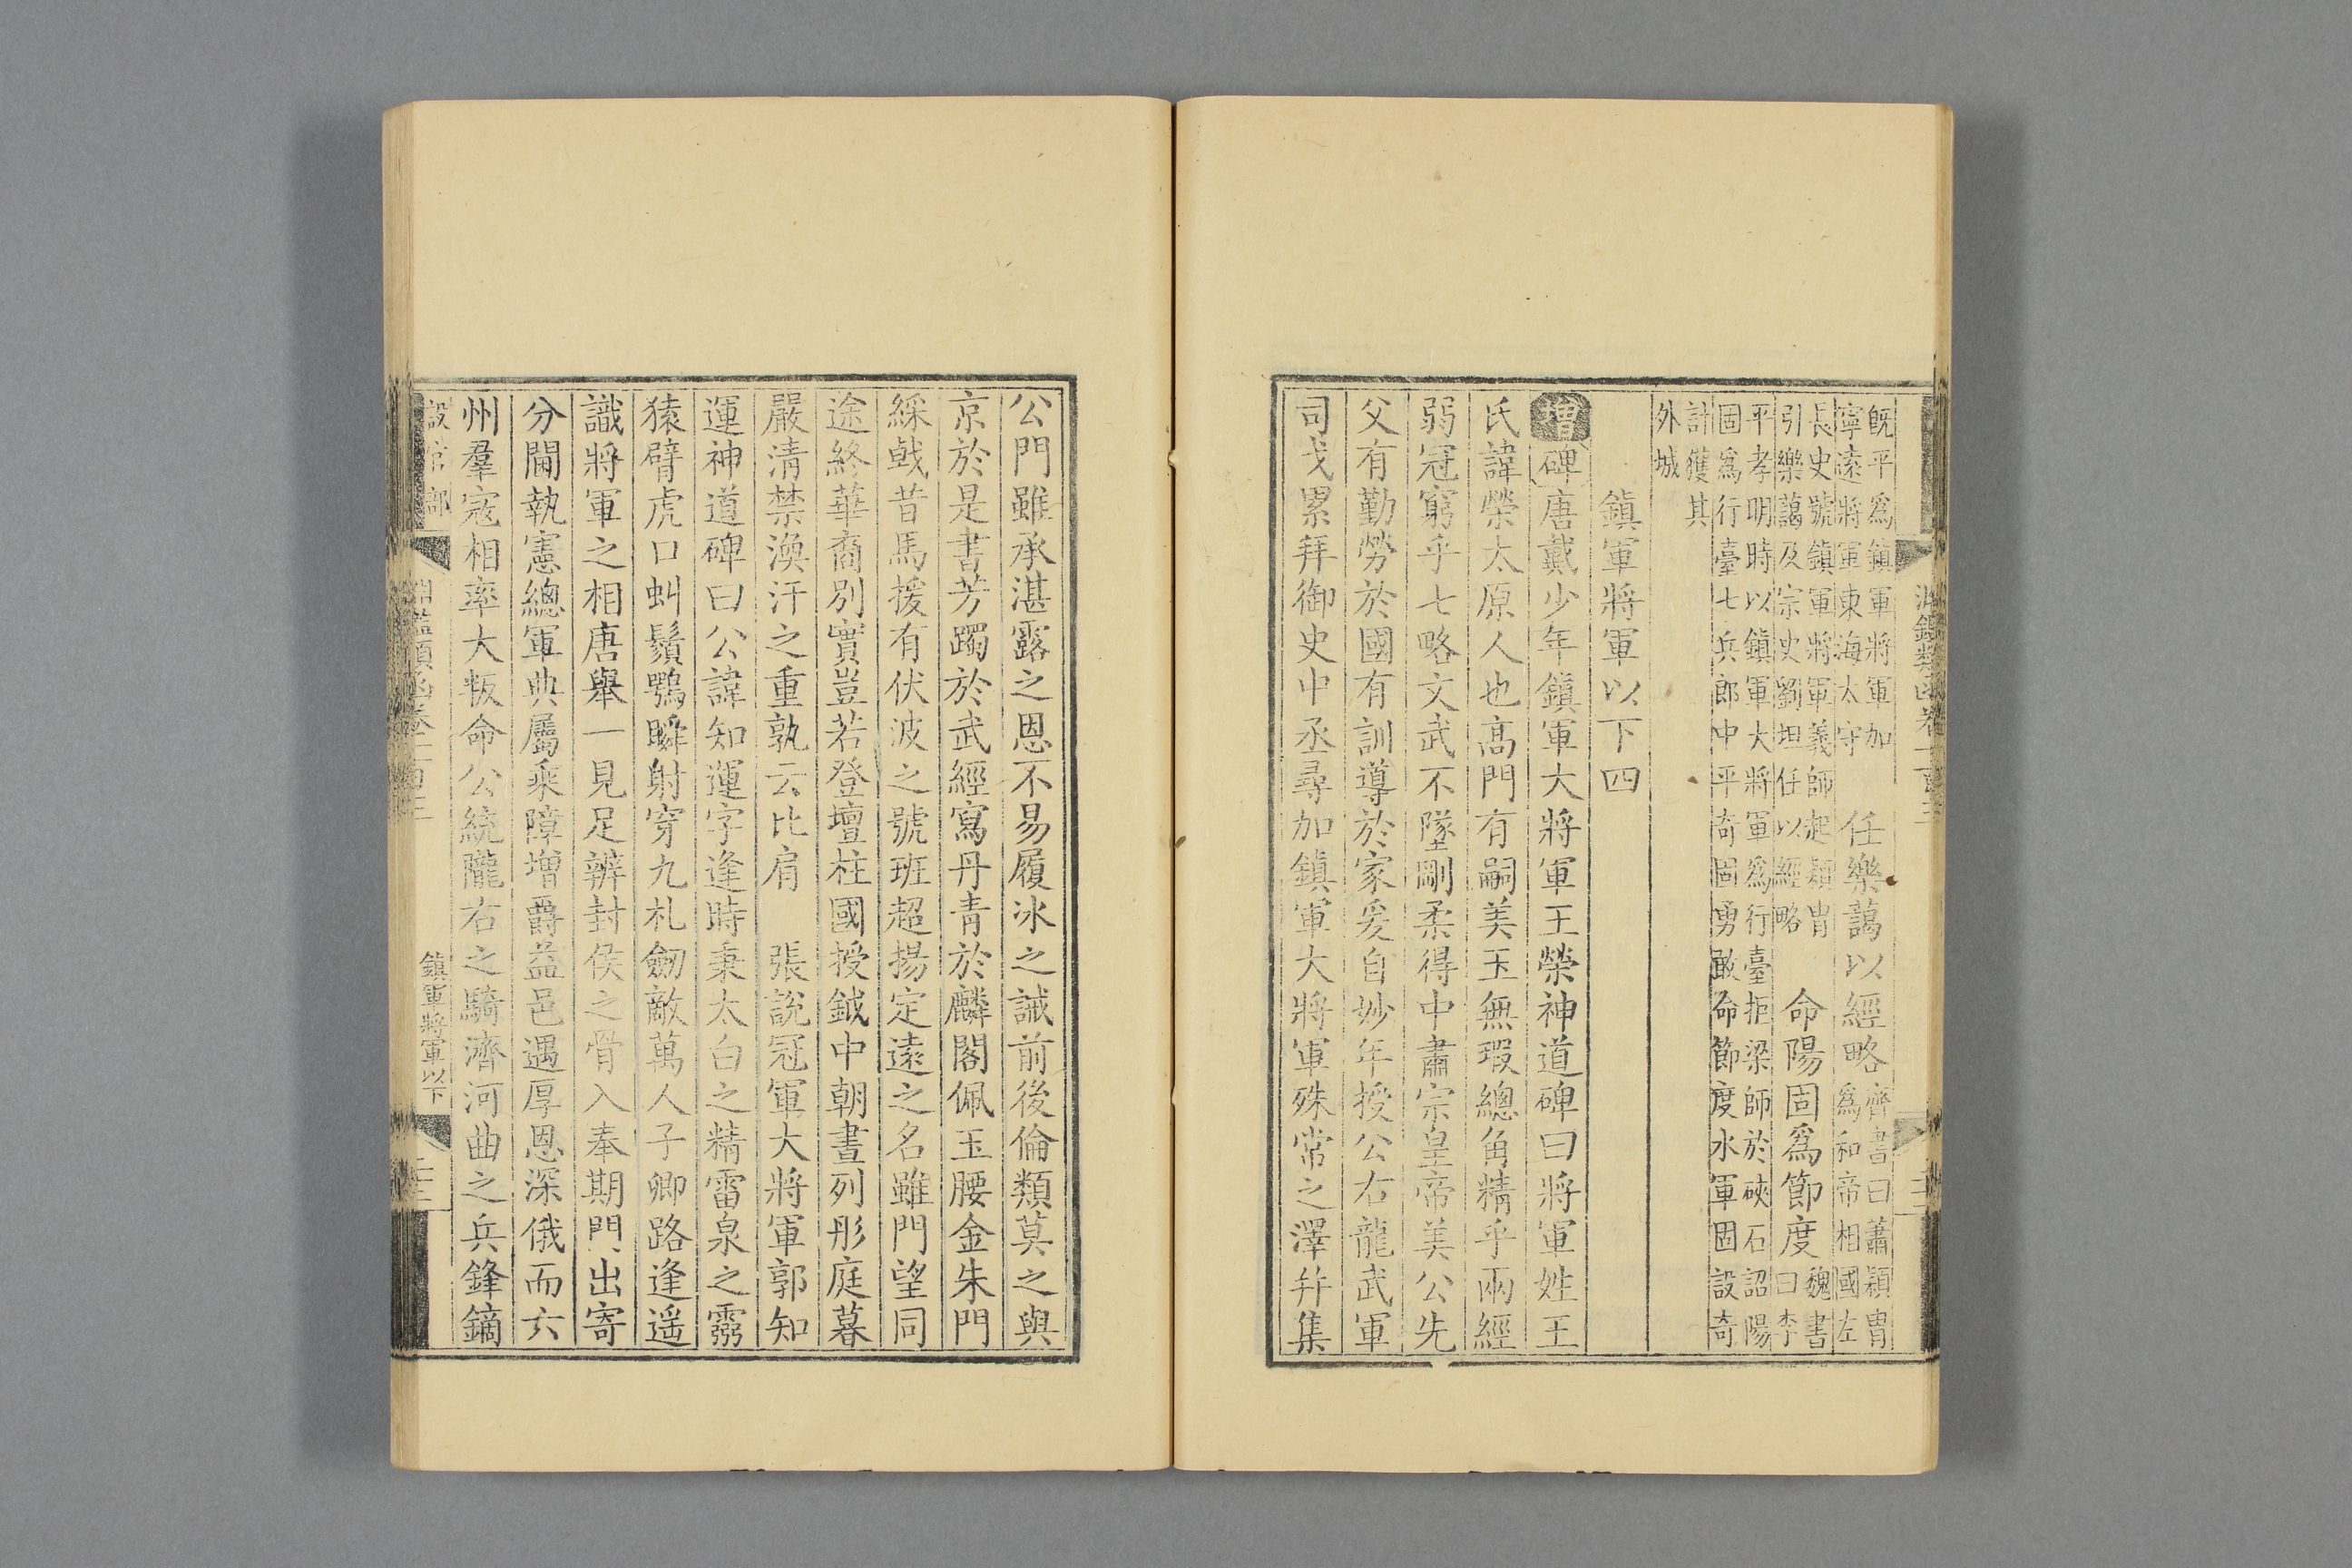 既平爲鎮軍將軍加
寧遠將軍東海太守
任樂藹以經略
齊書曰蕭穎冑
爲和帝相國左
長史號鎮軍將軍義師起穎冑
引樂藹及宗史劉坦任以經略
命陽固爲節度
魏書
曰李
平孝明時以鎮軍大將軍爲行臺拒梁師於硤石詔陽
固爲行臺七兵郎中平奇固勇敢命節度水軍固設奇
計獲其
外城
鎮軍將軍以下四
增碑唐戴少年鎮軍大將軍王榮神道碑曰將軍姓王
氏諱榮太原人也高門有嗣美玉無瑕總角精乎兩經
弱冠窮乎七略文武不墜剛柔得中肅宗皇帝美公先
父有勤勞於國有訓導於家爰自妙年授公右龍武軍
司戈累拜御史中丞尋加鎮軍大將軍殊常之澤并集
公門雖承湛露之恩不易履冰之誡前後倫類莫之與
京於是書芳躅於武經寫丹青於麟閣佩玉腰金朱門
綵戟昔馬援有伏波之號班超揚定遠之名雖門望同
途終華裔別實豈若登壇柱國授鉞中朝晝列彤庭暮
嚴清禁渙汗之重孰云比肩　張說冠軍大將軍郭知
運神道碑曰公諱知運字逢時秉太白之精雷泉之靈
猿臂虎口虯鬚鶚瞬射穿九札劒敵萬人子卿路逢遥
識將軍之相唐舉一見足辨封侯之骨入奉期門出寄
分閫執憲總軍典屬乘障增爵益邑遇厚恩深俄而六
州羣寇相率大叛命公統隴右之騎濟河曲之兵鋒鏑
設官部
淵鑑類函卷一百三
鎮軍將軍以下